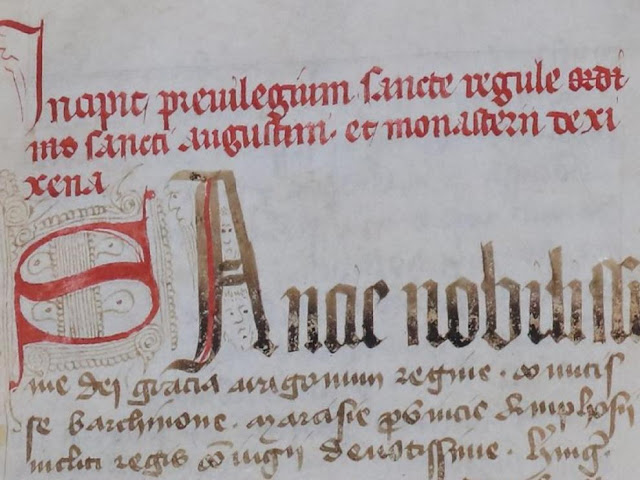 Incipit preuilegium sancte regule ordi
nis sancti augustini. et monasterii de xi
xena
SAncie nobilissi
me dei gracia aragonum regine. comitis
se barchinone. marcisie prouincie
incliti regis deuotissime.